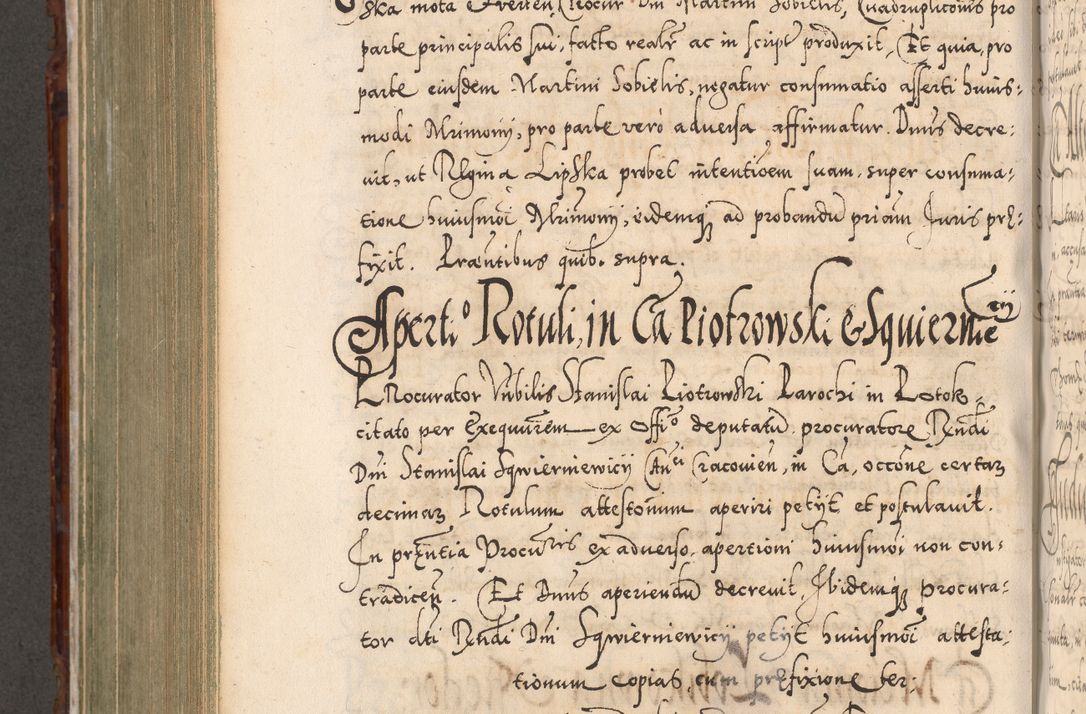 ska mota et verten, Procur Dni Martini Sobielis, Quadruplicoms pro
parte principalis sui, facto realr ac in script produxit, Et quia, pro
parte eiusdem Martini Sobielis, negatur consumatio asserti huius:
modi Mrimonij, pro parte vero adversa affirmatur. Dnus decre:
uit, ut Regina Lipska probet intentioem suam, super consuma:
tione huiusmoi Mrimonij, eidemq ad probandu priam Juris pre:
fixit. Praentibus quib. supra.
Aperti⁰ Rotuli, in Ca Piotrowski & Squierniecij
Procurator Nobilis Stanislai Piotrowski Parochi in Potok,
citato per Exequurem ex Offi⁰ deputatu procuratore Rndi
Dni Stanislai Sqwierniewicij Cnci Cracovien, in Ca, occone certaz
decimaz Rotulum attestonum aperiri petijt et postulavit.
In prntia Procuris ex adverso, apertioni huiusmoi non con:
tradicen. Et Dnus aperiendu decrevit, Ibidemq Procura:
tor dti Rndi Dni Sqwierniewicij petijt huiusmoi attesta:
tionum copias, cum prefixione ter: